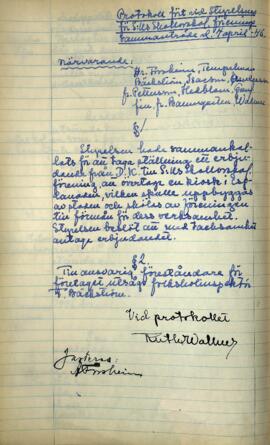 Protokoll fört vid Styrelsens
för S:ills Skollovskol. förenings
sammanträde d. 7 april -46.
Närvarande:
Hr. Forsheim, Tempelman
Bäckström, Isacson,
fr. Petterson, Hedblom,
frn. fr. Baumgarten, Wallner
§1
Styrelsen hade sammankal-
lats för att taga ställning till erbju-
dande från D.K. till S:ills Skollovskol.
förening, att övertaga en kiosk i Esp-
lanaden, vilken skulle uppbyggas
av staden och skötas av föreningen
till förmån för dess verksamhet.
Styrelsen beslöt att med tacksamhet
antaga erbjudandet.
§2.
Till ansvarig föreståndare för
företaget utsågs folkskoleinspektör
G. Bäckström.
Vid protokollet
Ruth Wallner
Justeras:
A Forsheim